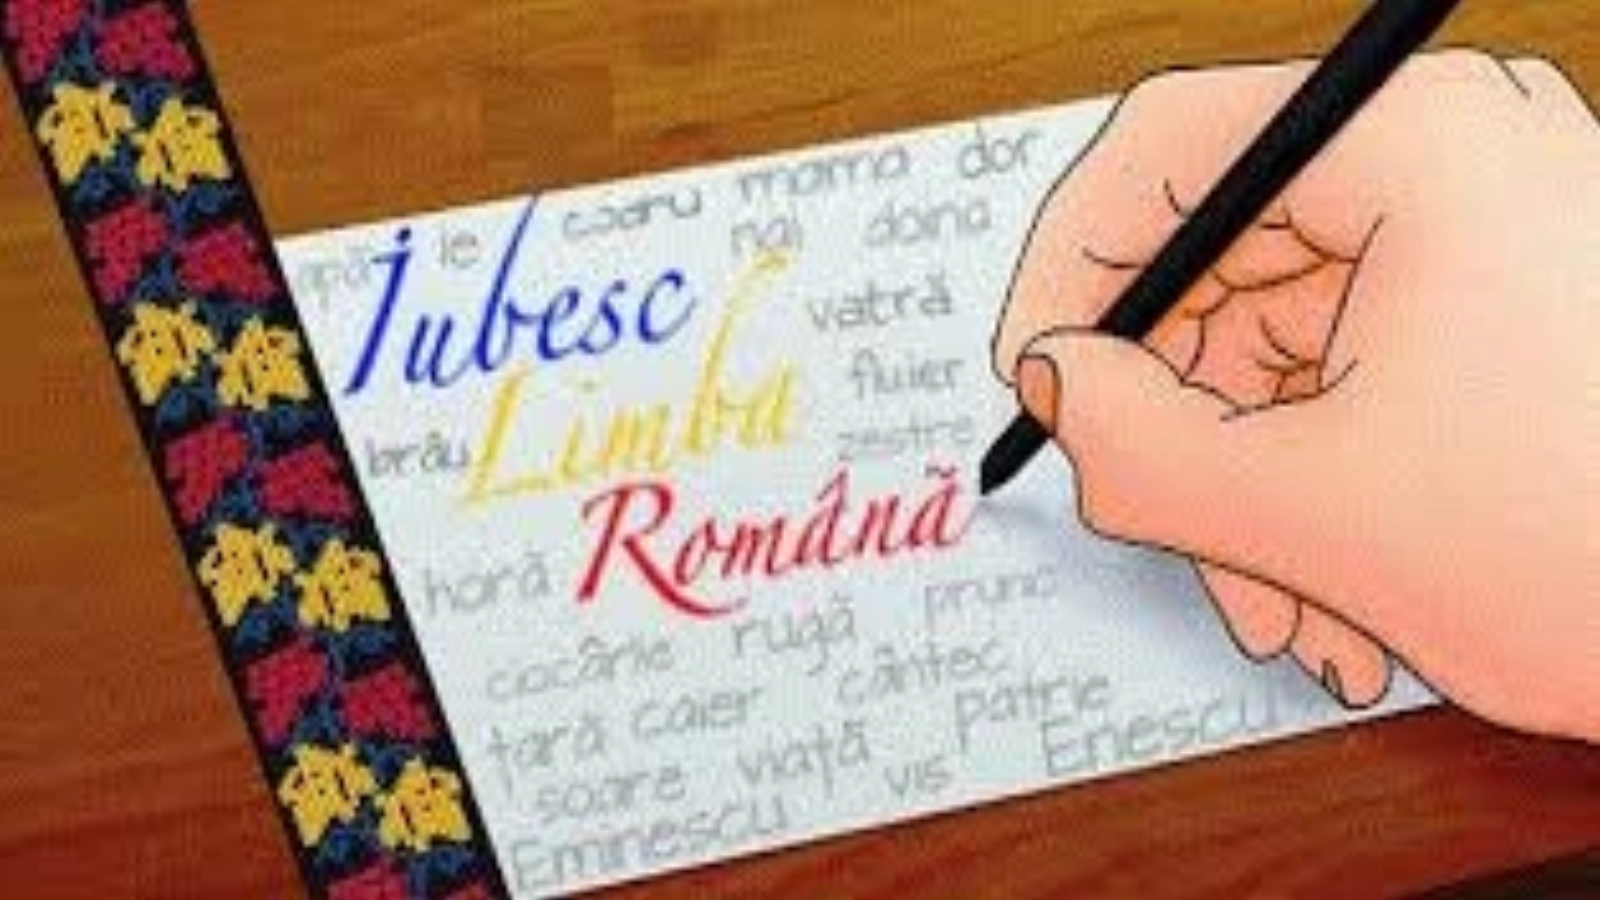 codru mama dor
apă ie nai doina
Iubesc vatră
Limba fluier
brâu zestre
Română
horă prunc
ciocârlie rugă
țară caier cântec
soare viață patrie
Eminescu vis Enescu